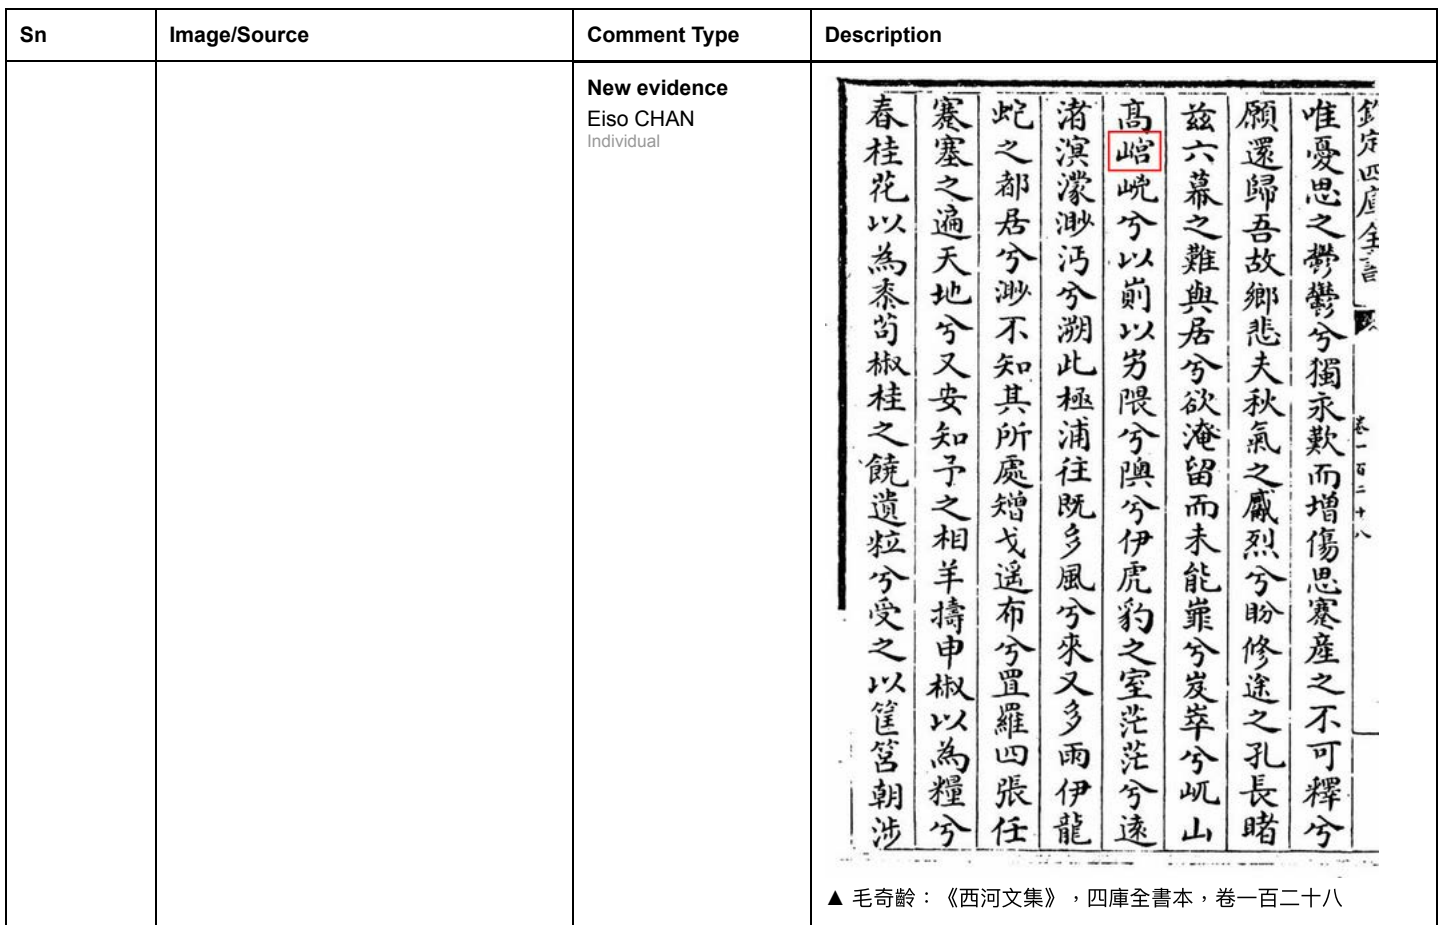 Sn
Image/Source
Comment Type
Description
New evidence
Eiso CHAN
Individual
欽定四庫全書 卷一百二十八
唯憂思之鬱鬱兮獨永歎而增傷思蹇産之不可釋兮
願還歸吾故鄉悲夫秋氣之烈兮盼修途之孔長睹
兹六幕之難與居兮欲淹留而未能兮岌崒兮屼山
髙峣兮以崱以屴隈兮隩兮伊虎豹之室茫茫兮遠
渚溟濛渺沔兮溯此極浦往既多風兮來又多雨伊龍
蛇之都居兮渺不知其所處矰弋遥布兮罝羅四張任
蹇塞之遍天地兮又安知予之相羊擣申椒以為糧兮
春桂花以為苟椒桂之饒遺粒兮受之以筐筥朝涉
▲ 毛奇齡：《西河文集》，四庫全書本，卷一百二十八